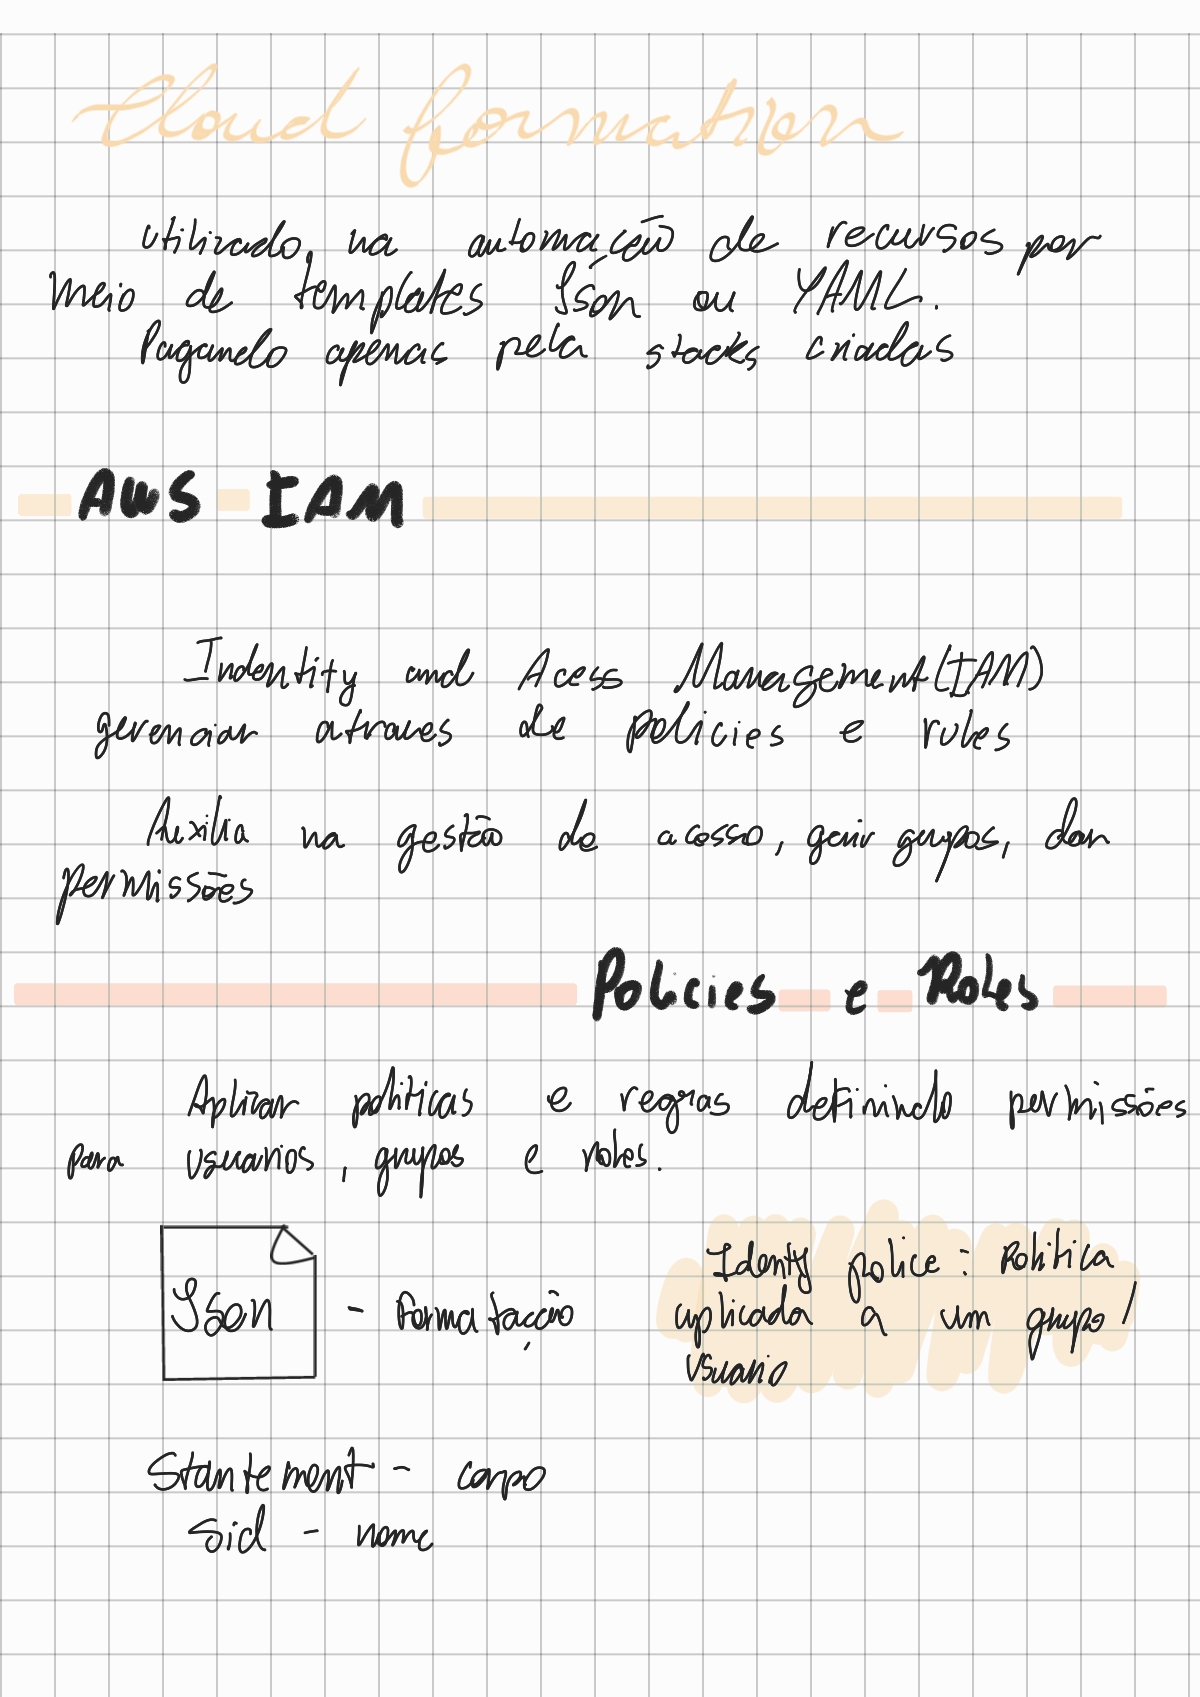 Cloud formation
utilizado, na automação de recursos por
meio de templates Json ou YAML.
Pagando apenas pela stacks criadas
AWS IAM
Indentity and Acess Management (IAM)
gerenciar atraves de policies e roles
Auxilia na gestão de acesso, gerir grupos, dar
permissões
Policies e Roles
Aplicar politicas e regras definindo permissões
para usuarios, grupos e roles.
Json - formatacção
Identy police: Politica
aplicada a um grupo/
usuario
Stantement - corpo
Sid - nome